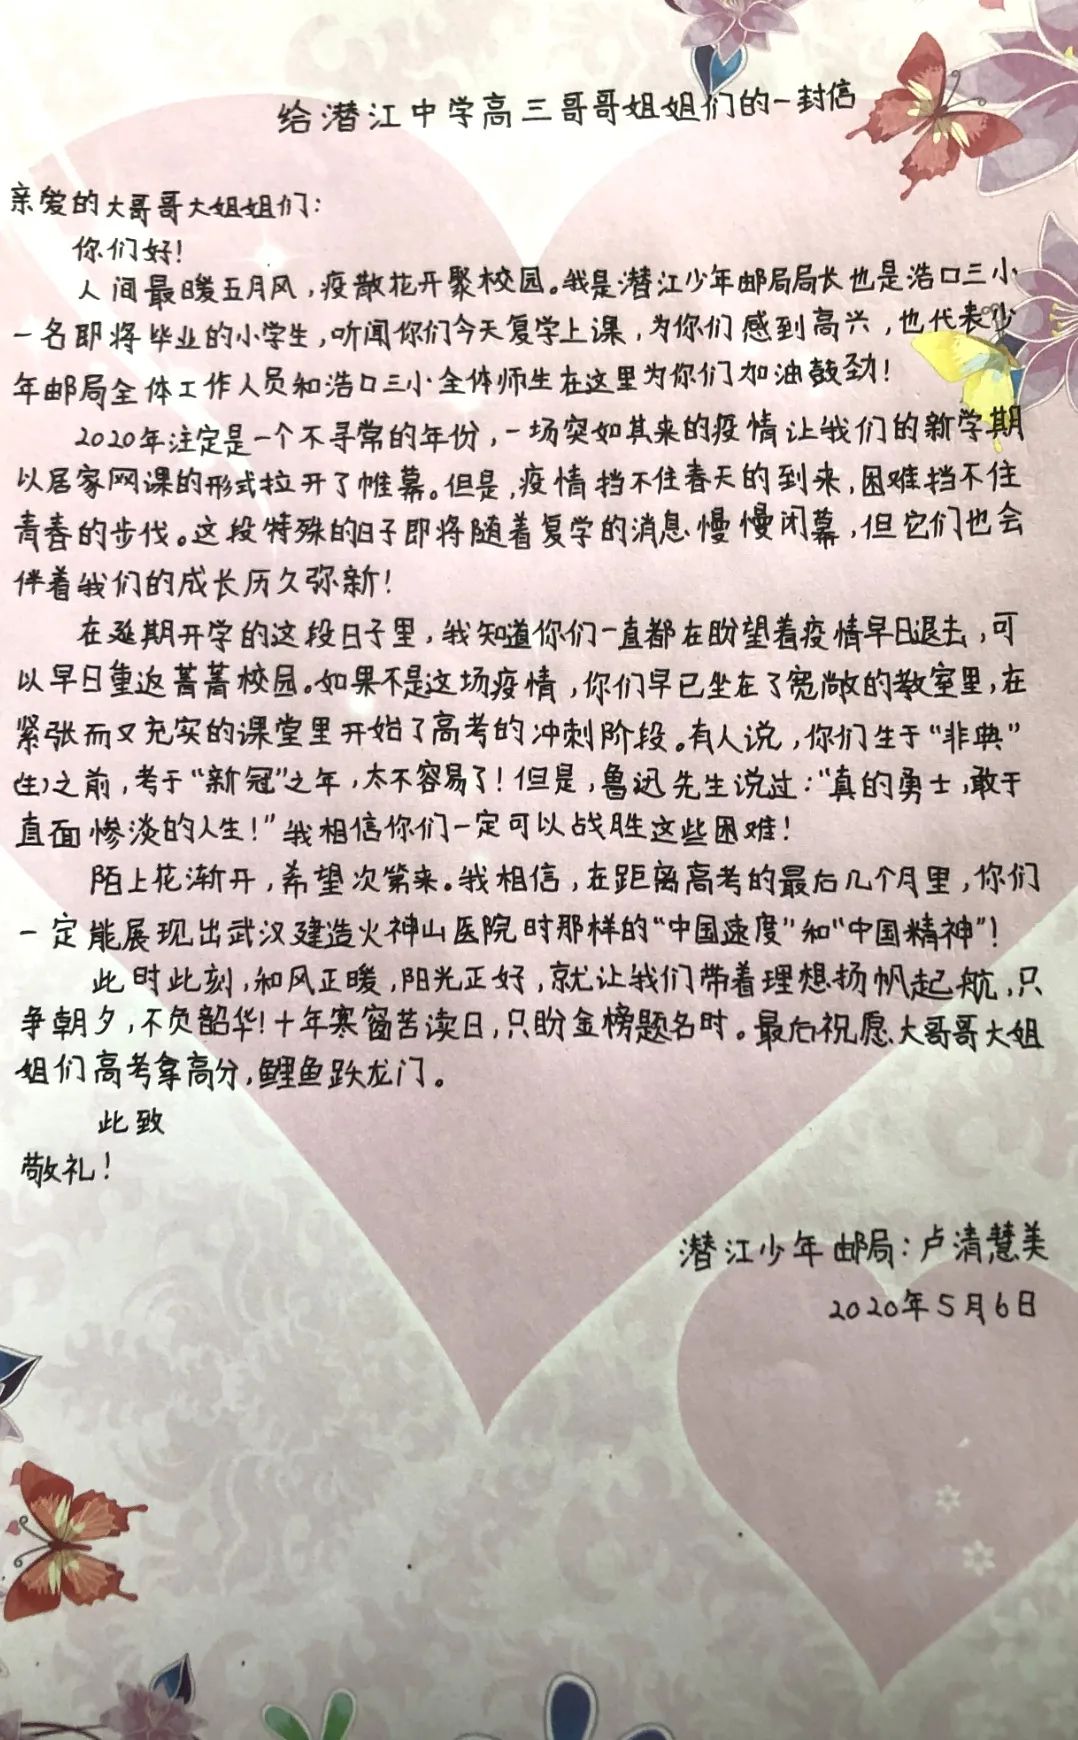 给潜江中学高三哥哥姐姐们的一封信
亲爱的大哥哥大姐姐们：
你们好！
人间最暖五月风，疫散花开聚校园。我是潜江少年邮局局长也是浩口三小
一名即将毕业的小学生，听闻你们今天复学上课，为你们感到高兴，也代表少
年邮局全体工作人员和浩口三小全体师生在这里为你们加油鼓劲！
2020年注定是一个不寻常的年份，一场突如其来的疫情让我们的新学期
以居家网课的形式拉开了帷幕。但是，疫情挡不住春天的到来，困难挡不住
青春的步伐。这段特殊的日子即将随着复学的消息慢慢闭幕，但它们也会
伴着我们的成长历久弥新！
在延期开学的这段日子里，我知道你们一直都在盼望着疫情早日退去，可
以早日重返菁菁校园。如果不是这场疫情，你们早已坐在了宽敞的教室里，在
紧张而又充实的课堂里开始了高考的冲刺阶段。有人说，你们生于“非典”
(生)之前，考于“新冠”之年，太不容易了！但是，鲁迅先生说过：“真的勇士，敢于
直面惨淡的人生！”我相信你们一定可以战胜这些困难！
陌上花渐开，希望次第来。我相信，在距离高考的最后几个月里，你们
一定能展现出武汉建造火神山医院时那样的“中国速度”和“中国精神”！
此时此刻，和风正暖，阳光正好，就让我们带着理想扬帆起航，只
争朝夕，不负韶华！十年寒窗苦读日，只盼金榜题名时。最后祝愿大哥哥大姐
姐们高考拿高分，鲤鱼跃龙门。
此致
敬礼！
潜江少年邮局：卢清慧美
2020年5月6日